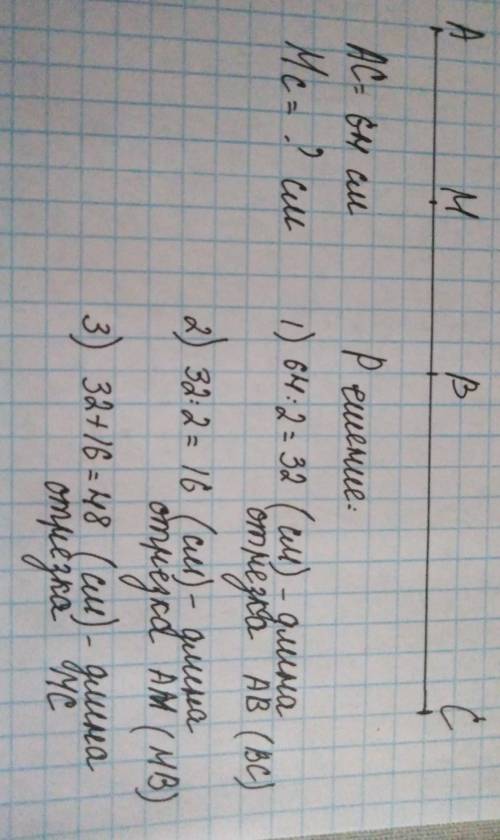 A M B C
AC = 64 см
MC = ? см
Решение:
1) 64 : 2 = 32 (см) - длина
отрезка AB (BC)
2) 32 : 2 = 16 (см) - длина
отрезка AM (MB)
3) 32 + 16 = 48 (см) - длина
отрезка MC